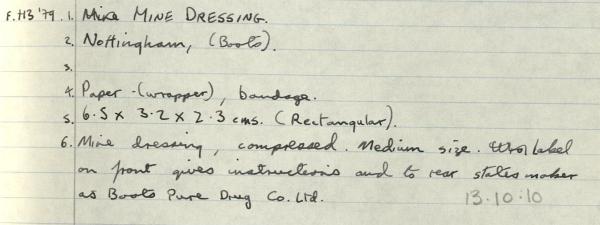 F.H3 '79. 1. Mine MINE DRESSING.
2. Nottingham, (Boots).
3.
4. Paper -(wrapper), bandage.
5. 6.5 x 3.2 x 2.3 cms. (Rectangular).
6. Mine dressing, compressed. Medium size. label
on front gives instructions and to rear states maker
as Boots Pure Drug Co. Ltd.
13.10.10